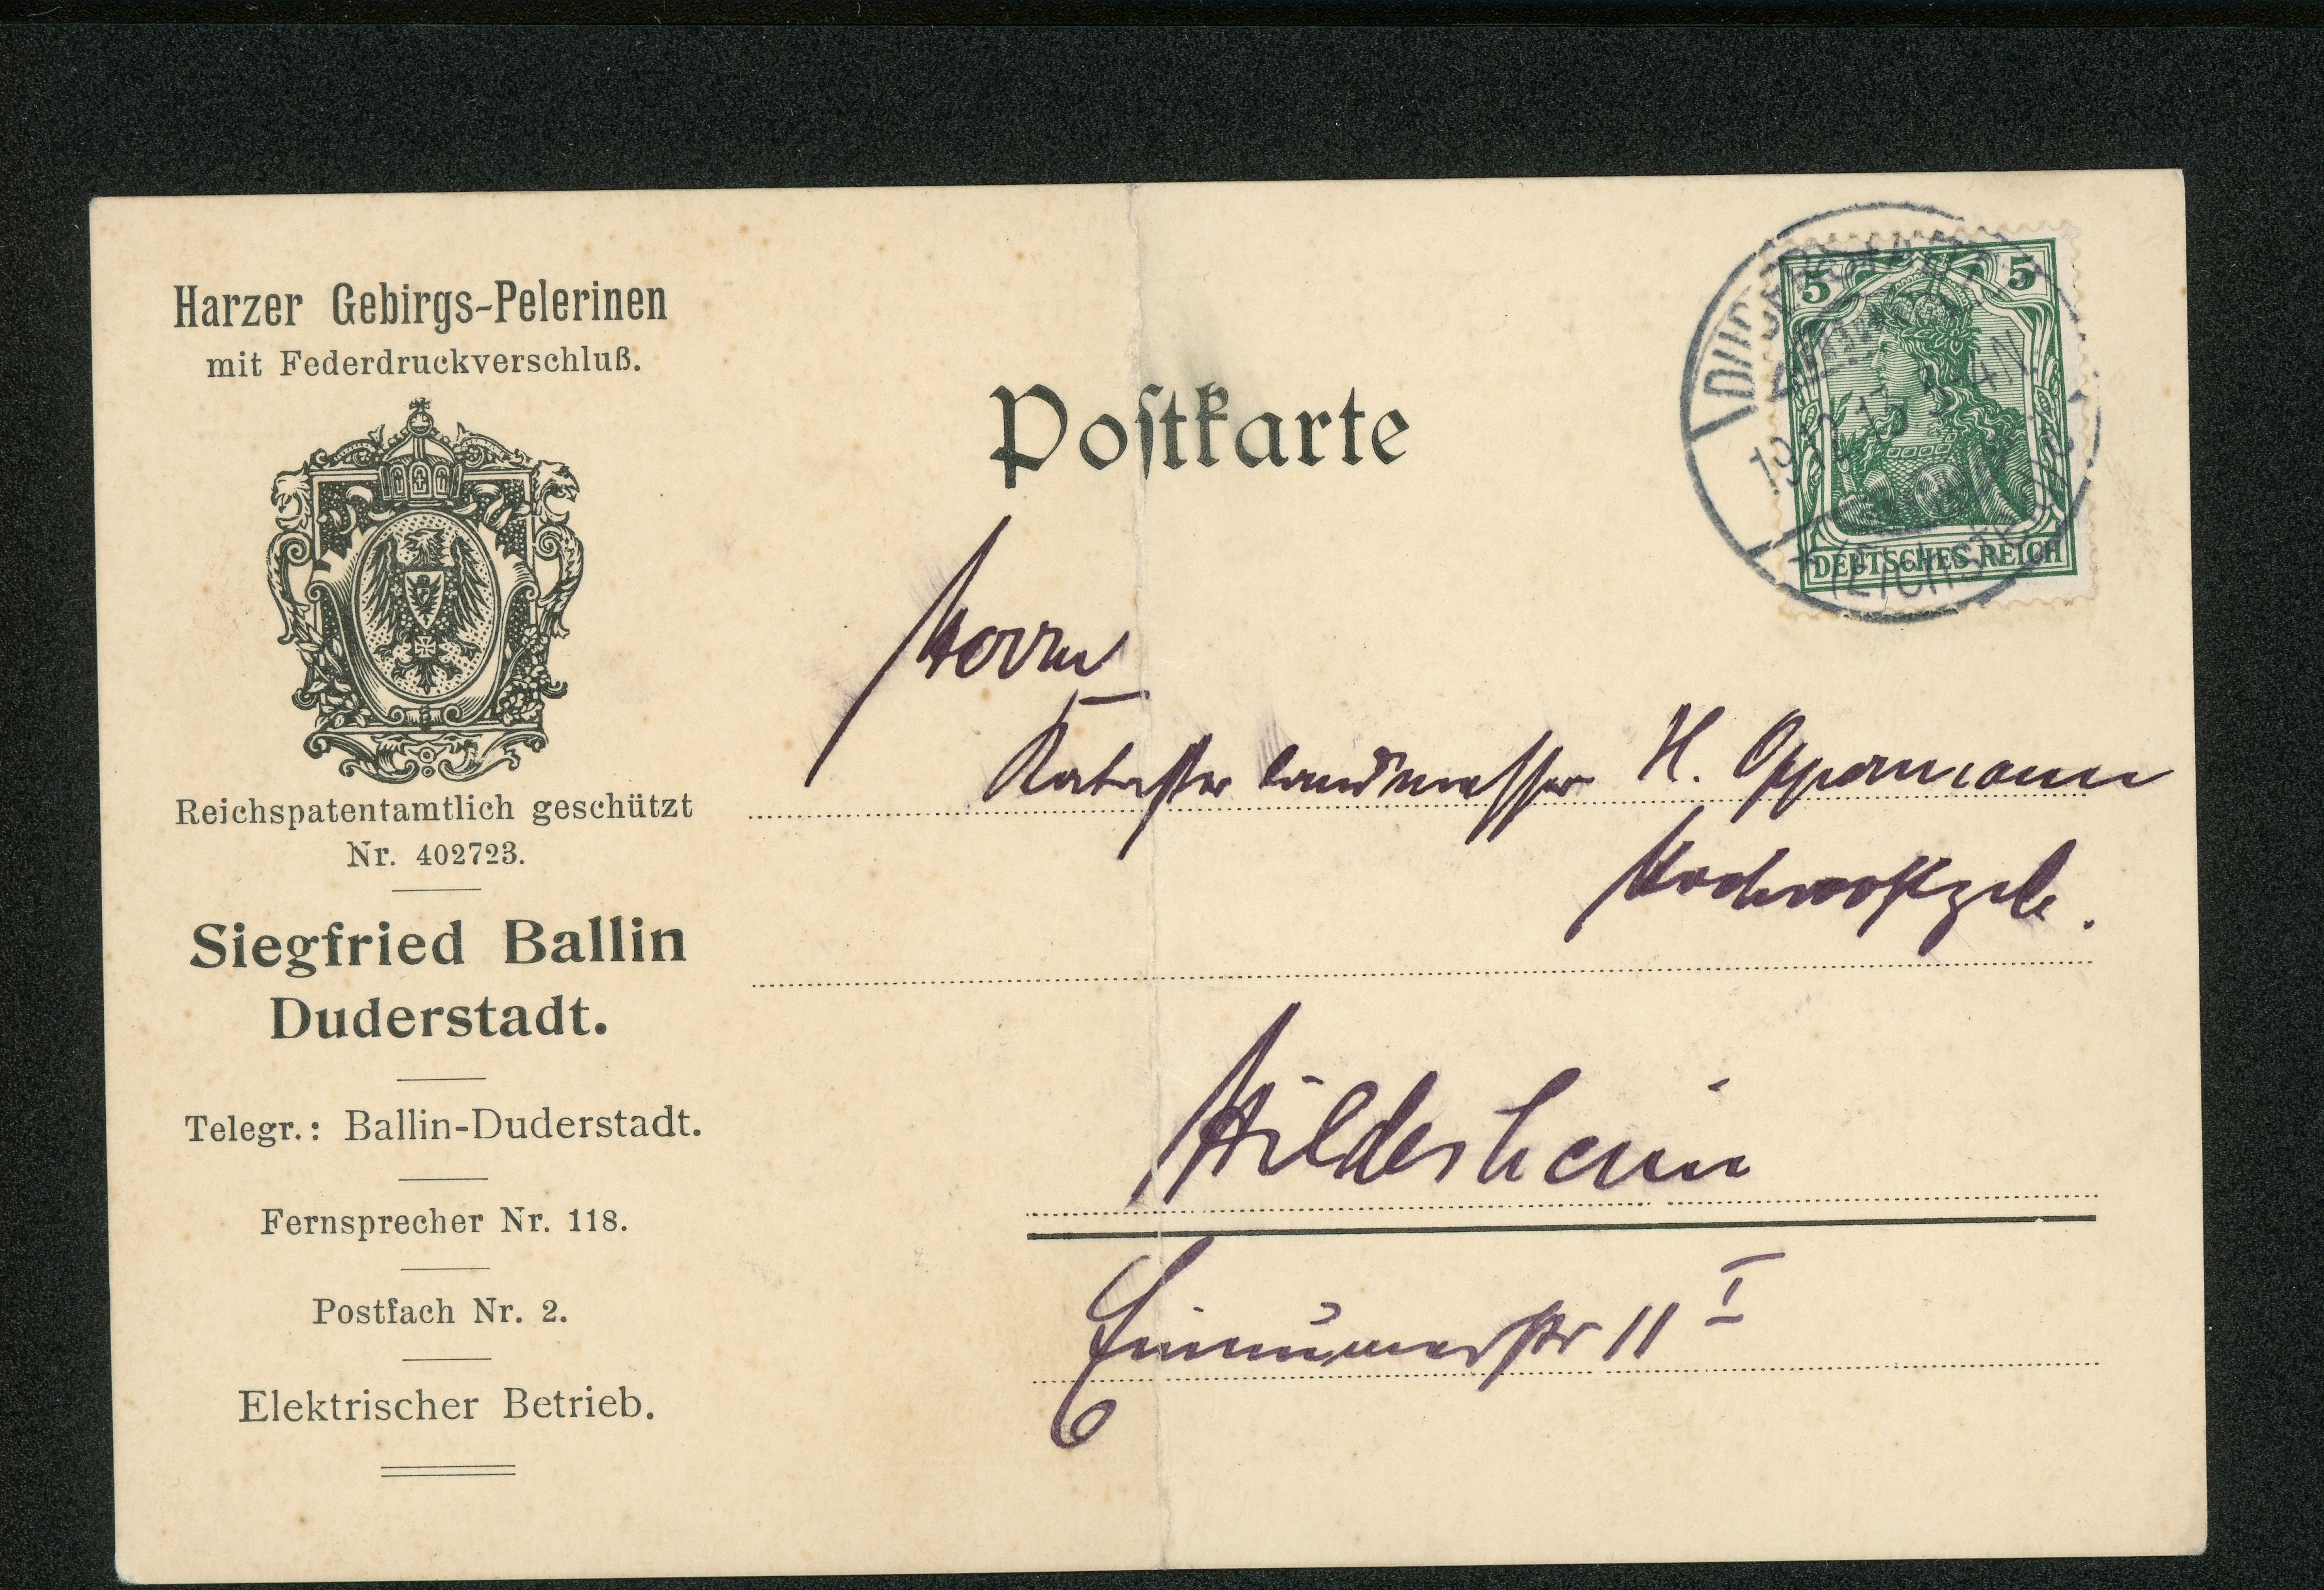 Harzer Gebirgs-Pelerinen
mit Federdruckverschluß.
Reichspatentamtlich geschützt
Nr. 402723.
Siegfried Ballin
Duderstadt.
Telegr.: Ballin-Duderstadt.
Fernsprecher Nr. 118.
Postfach Nr. 2.
Elektrischer Betrieb.
Poſtkarte
5 5
DEUTSCHES REICH
Herrn
Katasterlandmesser H. Oppermann
Hochwohlgeb.
Hildesheim
str 11 I